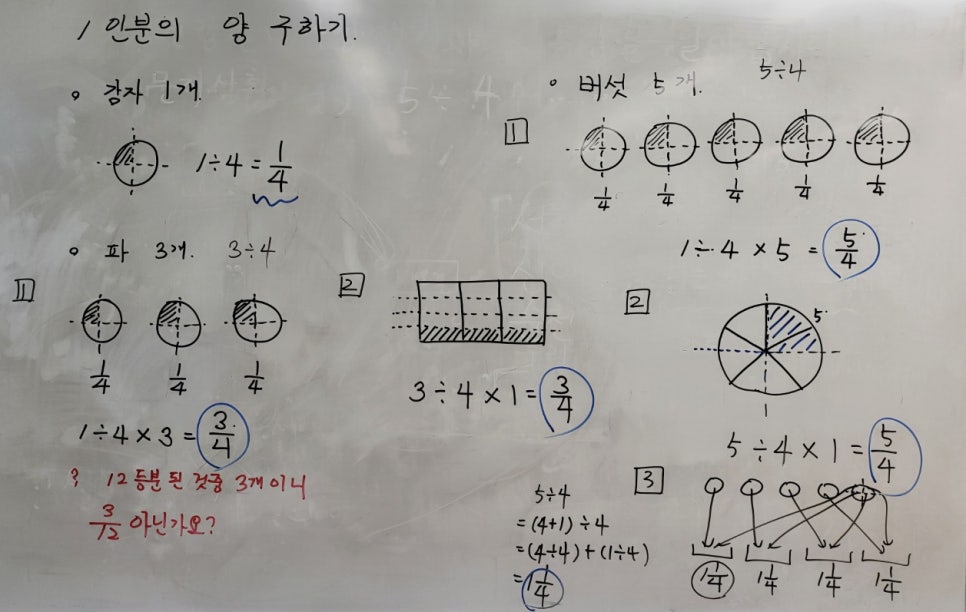 1인분의 양 구하기.
∘ 감자 1개.
1÷4 = 1/4
∘ 파 3개. 3÷4
1
1/4 1/4 1/4
1÷4×3 = 3/4
? 12등분된 것중 3개이니
3/12 아닌가요?
2
3÷4×1 = 3/4
∘ 버섯 5개. 5÷4
1
1/4 1/4 1/4 1/4 1/4
1÷4×5 = 5/4
2
5
1
5÷4×1 = 5/4
5÷4
=(4+1)÷4
=(4÷4)+(1÷4)
=1 1/4
3
1 1/4 1 1/4 1 1/4 1 1/4